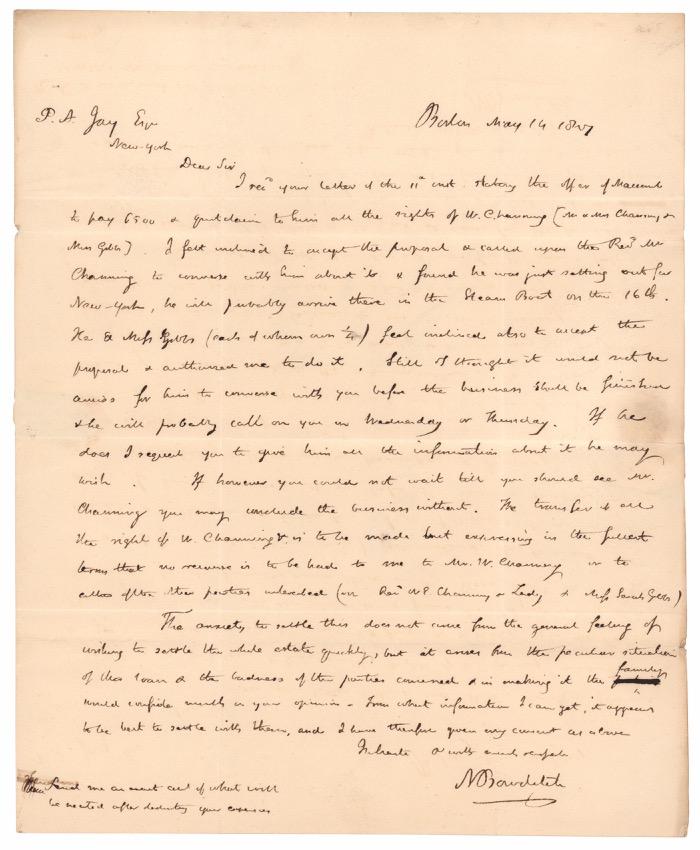 P. A. Jay Esqr
Boston May 14 1827
New-York
Dear Sir
I recd your letter of the 11th inst. stating the offer of
to pay 6500 & quitclaim to him all the rights of W. Channing (W & Mrs Channing &
Miss Gibbs). I felt inclined to accept the proposal & called upon the Revd Mr
Channing to converse with him about it & found he was just setting out for
New-York, he will probably arrive there in the Steam Boat on the 16th.
He & Miss Gibbs (each of whom own ¼) feel inclined also to accept the
proposal & authorised me to do it. Still I thought it would not be
amiss for him to converse with you before the business shall be finished
& he will probably call on you on Wednesday or Thursday. If he
does I request you to give him all the information about it he may
wish. If however you could not wait till you should see Mr.
Channing you may conclude the business without. The transfer of all
the right of W. Channing & is to be made but expressing in the fullest
terms that no recourse is to be had to me to Mr. W. Channing or to
either of the other parties interested (viz Revd W E. Channing & Lady & Miss Sarah Gibbs)
The anxiety to settle this does not come from the general feeling of
wishing to settle the whole estate quickly, but it arises from the peculiar situation
of this loan & the badness of the parties concerned & in making it the family
would confide much in your opinion - From what information I can get, it appears
to be best to settle with them, and I have therefore given my consent as above
In haste & with much respect
N Bowditch
Send me an exact acct of what will
be received after deducting your expenses